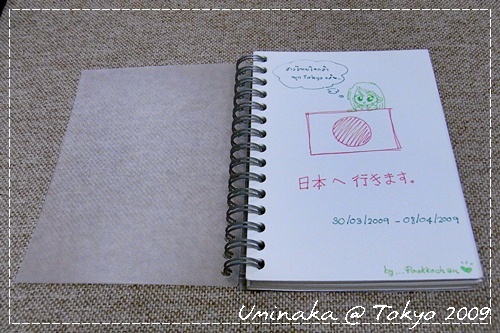 Tokyo
日本へ行きます。
30/03/2009 - 08/04/2009
by...
Uminaka @ Tokyo 2009